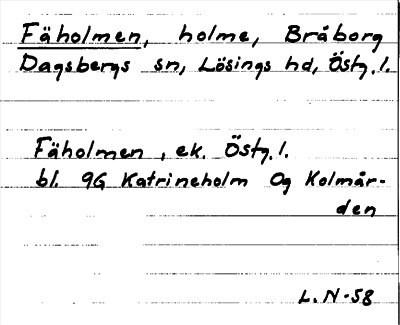 Fäholmen, holme, Bråborg
Dagsbergs sn, Lösings hd, Östg.l.
Fäholmen, ek. Östg.l.
bl. 9G Katrineholm Og Kolmår-
den
L.N-58